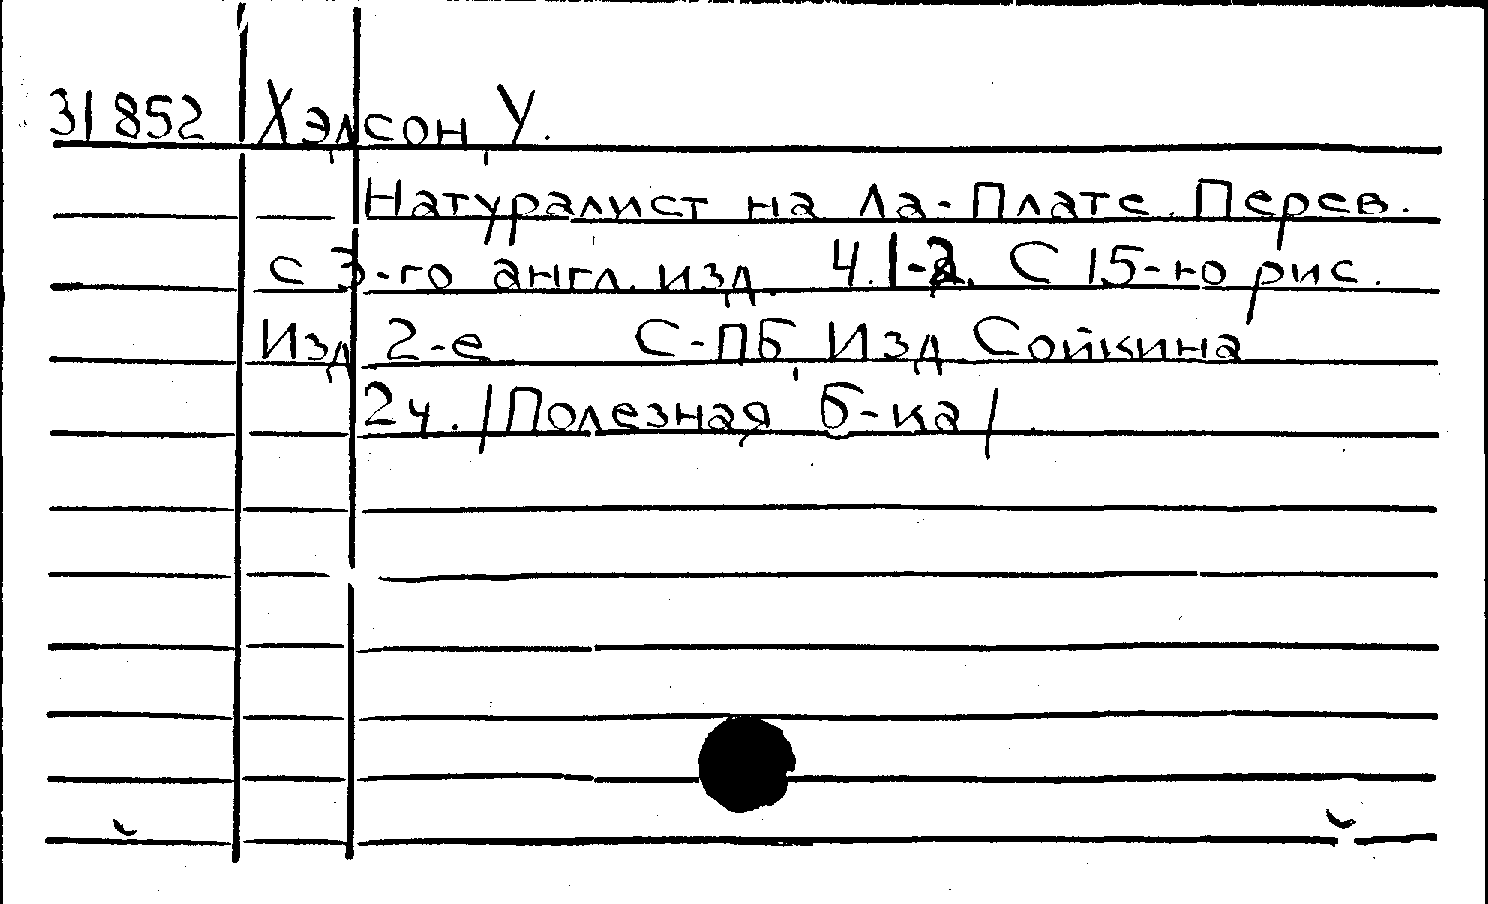 31852 Хэдсон, У.
Натуралист на Ла-Плате. Перев.
с 3-го англ. изд. Ч. 1-2. С 15-ю рис.
Изд 2-е С-ПБ, Изд Сойкина
2ч. /Полезная б-ка/